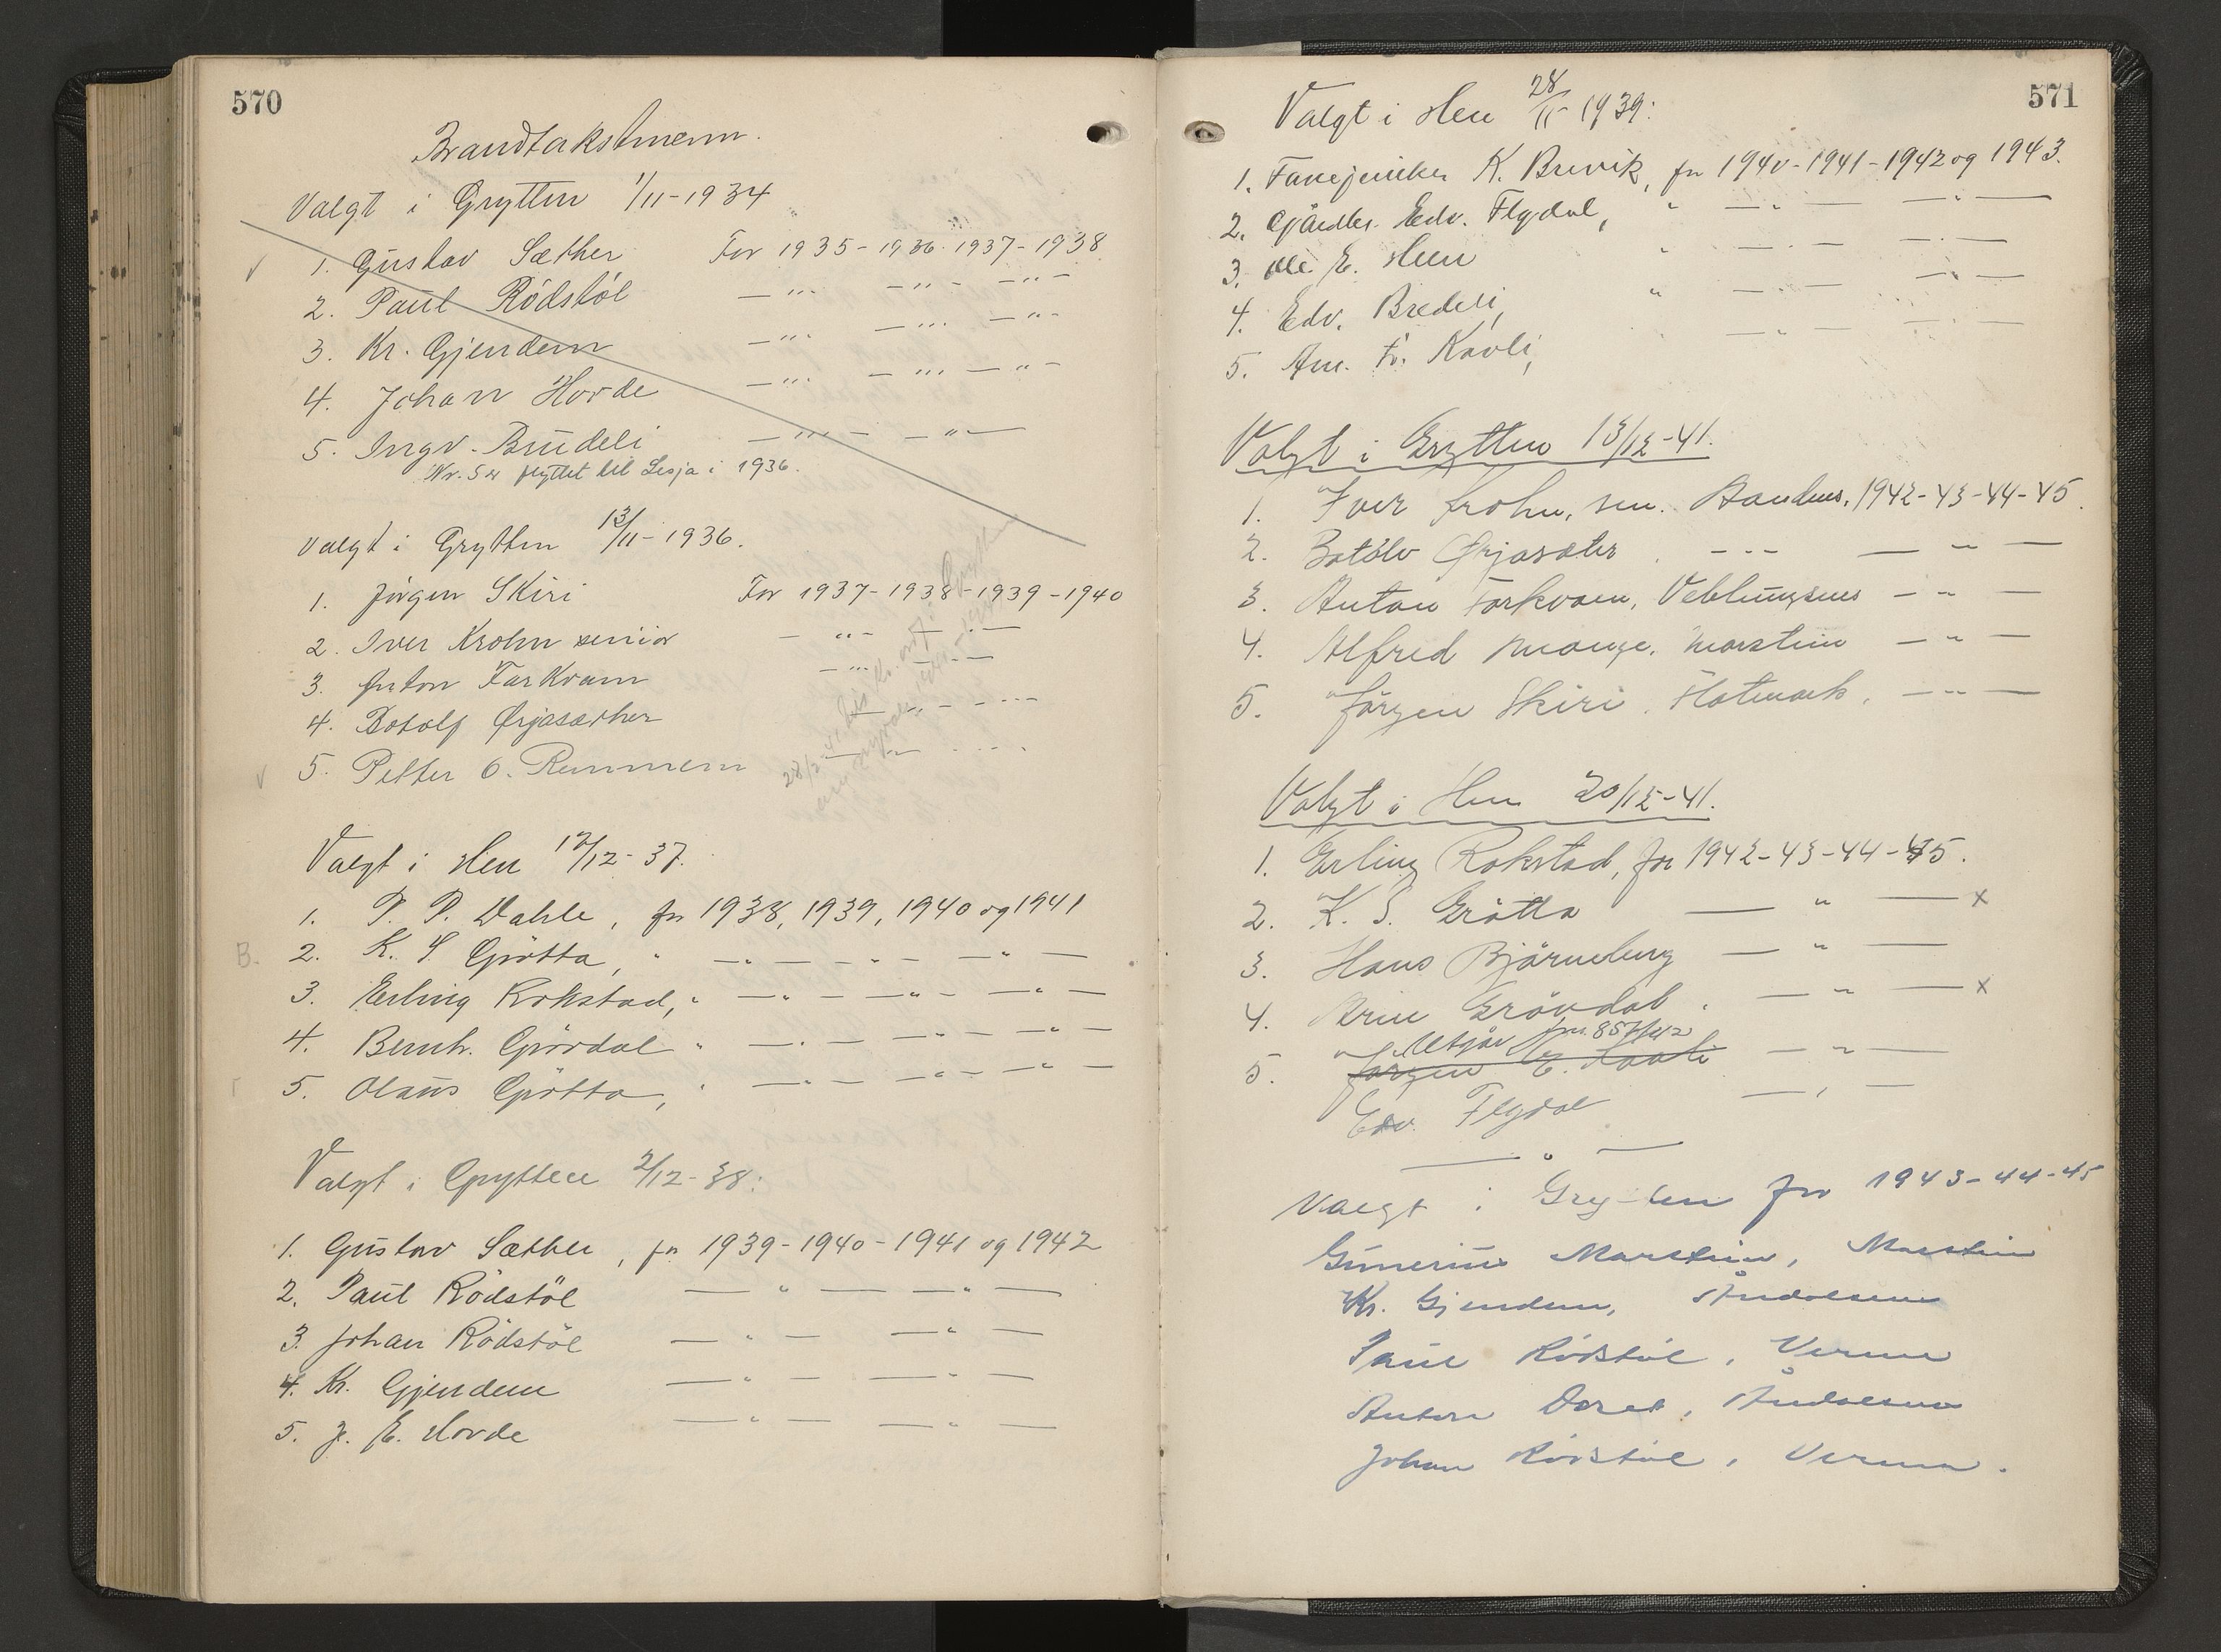 570
Brandtakstmenn.
Valgt i Grytten 1/11-1934
1. Gustav Sæther For 1935-1936-1937-1938
2. Paul Rødstöl —"— —"— —"—
3. Kr. Gjendem —"— —"— —"—
4. Johan Horde —"— —"— —"—
5. Ingv. Brudeli —"— —"—
Nr. 5 er flyttet til Lesja i 1936.
Valgt i Grytten 13/11-1936.
1. Jörgen Skiri For 1937-1938-1939-1940
2. Iver Krohn senior —"— —"—
3. Anton Farkvam —"— —"—
4. Botolf Ørjasæther —"— —"—
5. Petter O. Remmem —"— —"—
Valgt i Hen 17/12-37.
1. P. P. Dahle, for 1938, 1939, 1940 og 1941
B. 2. K. S. Grötta, " —"— —"— —"—
3. Erling Rokstad, " —"— —"— —"—
4. Bernh. Grövdal " —"— —"— —"—
5. Olaus Grötta, " —"— —"— —"—
Valgt i Grytten 2/12-38:
1. Gustav Sæther, for 1939-1940-1941 og 1942
2. Paul Rödstöl —"— —"—
3. Johan Rödstöl —"— —"—
4. Kr. Gjendem —"— —"—
5. J. E. Horde —"— —"—
571
Valgt i Hen 28/11-1939:
1. Fanejunker K. Brevik, for 1940-1941-1942 og 1943.
2. Gårdbr. Edv. Flydal, " —"— —"—
3. Ole E. Hen " —"— —"—
4. Edv. Bredeli, " —"— —"—
5. Kavli, —"— —"—
Valgt i Grytten 13/12-41.
1. Iver Krohn, sen. 1942-43-44-45.
2. Botolv Ørjasæter. --- —"—
3. Anton Farkvam, Veblungsnes —"—
4. Alfred Mange, Marstein —"—
5. Jörgen Skiri, Flatmark, —"—
Valgt i Hen 20/12-41.
1. Erling Rokstad, for 1942-43-44-45.
2. K. S. Grötta —"— x
3. Hans Bjørneberg —"—
4. Arne Grövdal. —"— x
Utgår jnr. 857/42
5. Jörgen E. Kavli —"—
Edv. Flydal —"—
—"—
Valgt i Grytten for 1943-44-45
Gunerius Marstein, Marstein
Kr. Gjendem, Åndalsnes
Paul Rödstöl, Verma
Anton Åndalsnes
Johan Rödstöl, Verma.